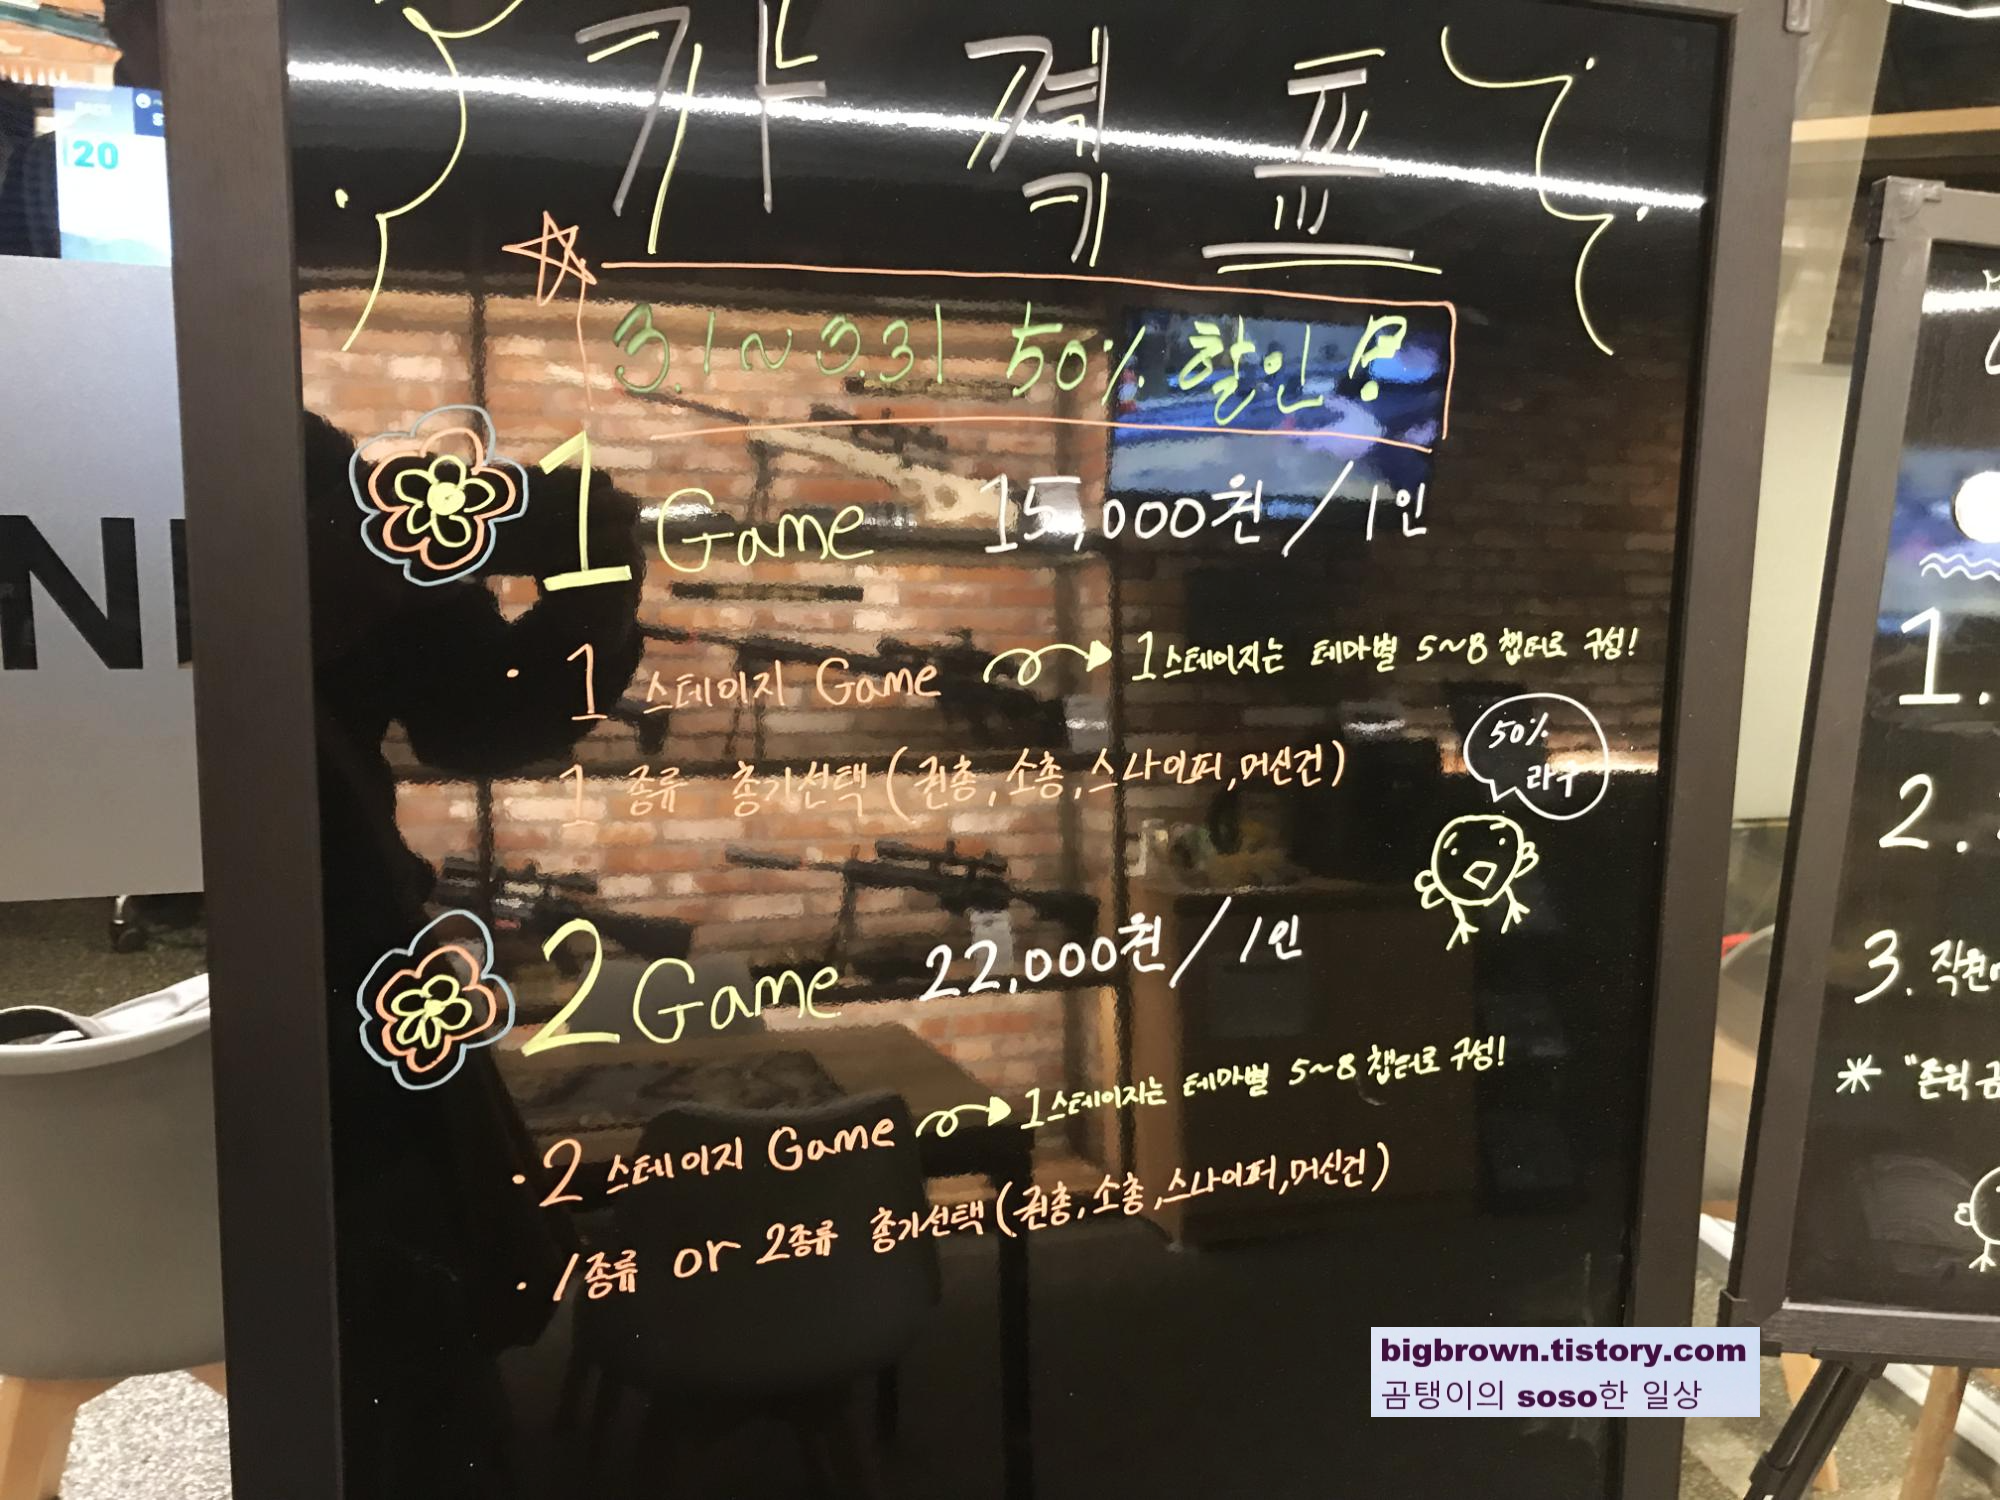 가격표
3.1~3.31 50% 할인!
1 Game 15,000원/1인
· 1 스테이지 Game 1스테이지는 테마별 5~8 챕터로 구성!
1 종류 총기선택(권총, 소총, 스나이퍼, 머신건)
50%
라구
2 Game 22,000원/1인
· 2 스테이지 Game 1스테이지는 테마별 5~8 챕터로 구성!
· 1종류 or 2종류 총기선택(권총, 소총, 스나이퍼, 머신건)
20
N
1.
2.
3. 직원
* "존윅
bigbrown.tistory.com
곰탱이의 soso한 일상